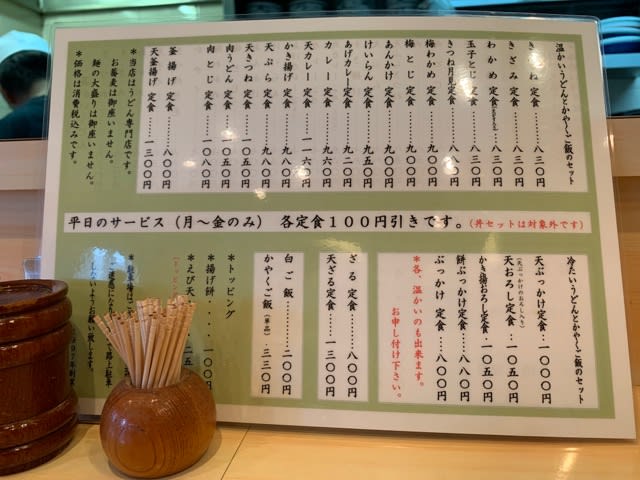 温かいうどんとかやくご飯のセット
きつね 定食……八三〇円
きざみ 定食……八三〇円
わかめ 定食……八三〇円
玉子とじ 定食……八三〇円
きつね月見定食……八八〇円
梅わかめ 定食……九〇〇円
梅とじ 定食……九〇〇円
あんかけ 定食……九〇〇円
けいらん 定食……九五〇円
あげカレー定食……九二〇円
カレー 定食……九六〇円
天カレー 定食……一一六〇円
かき揚げ 定食……九八〇円
天ぷら 定食……九八〇円
天きつね 定食……一〇五〇円
肉うどん 定食……一〇五〇円
肉とじ 定食……一〇八〇円
釜揚げ 定食……八〇〇円
天釜揚げ 定食……一三〇〇円
*当店はうどん専門店です。
お蕎麦は御座いません。
麺の大盛りは御座いません。
*価格は消費税込みです。
平日のサービス（月〜金のみ） 各定食100円引きです。（丼セットは対象外です）
冷たいうどんとかやくご飯のセット
天ぶっかけ定食……一〇〇〇円
（天ぶっかけのおろし入り）
天おろし定食……一〇五〇円
かき揚おろし定食・一〇五〇円
餅ぶっかけ定食……八八〇円
ぶっかけ 定食……八〇〇円
*各、温かいのも出来ます。
お申し付け下さい。
ざる 定食……八〇〇円
天ざる定食……一三〇〇円
白ご飯……二〇〇円
かやくご飯（単品）・三三〇円
*トッピング
*揚げ餅・・・・一〇〇円
*えび天
（トッピン
*駐車場は
迷惑にな で路上駐車
しないようお願い致します。